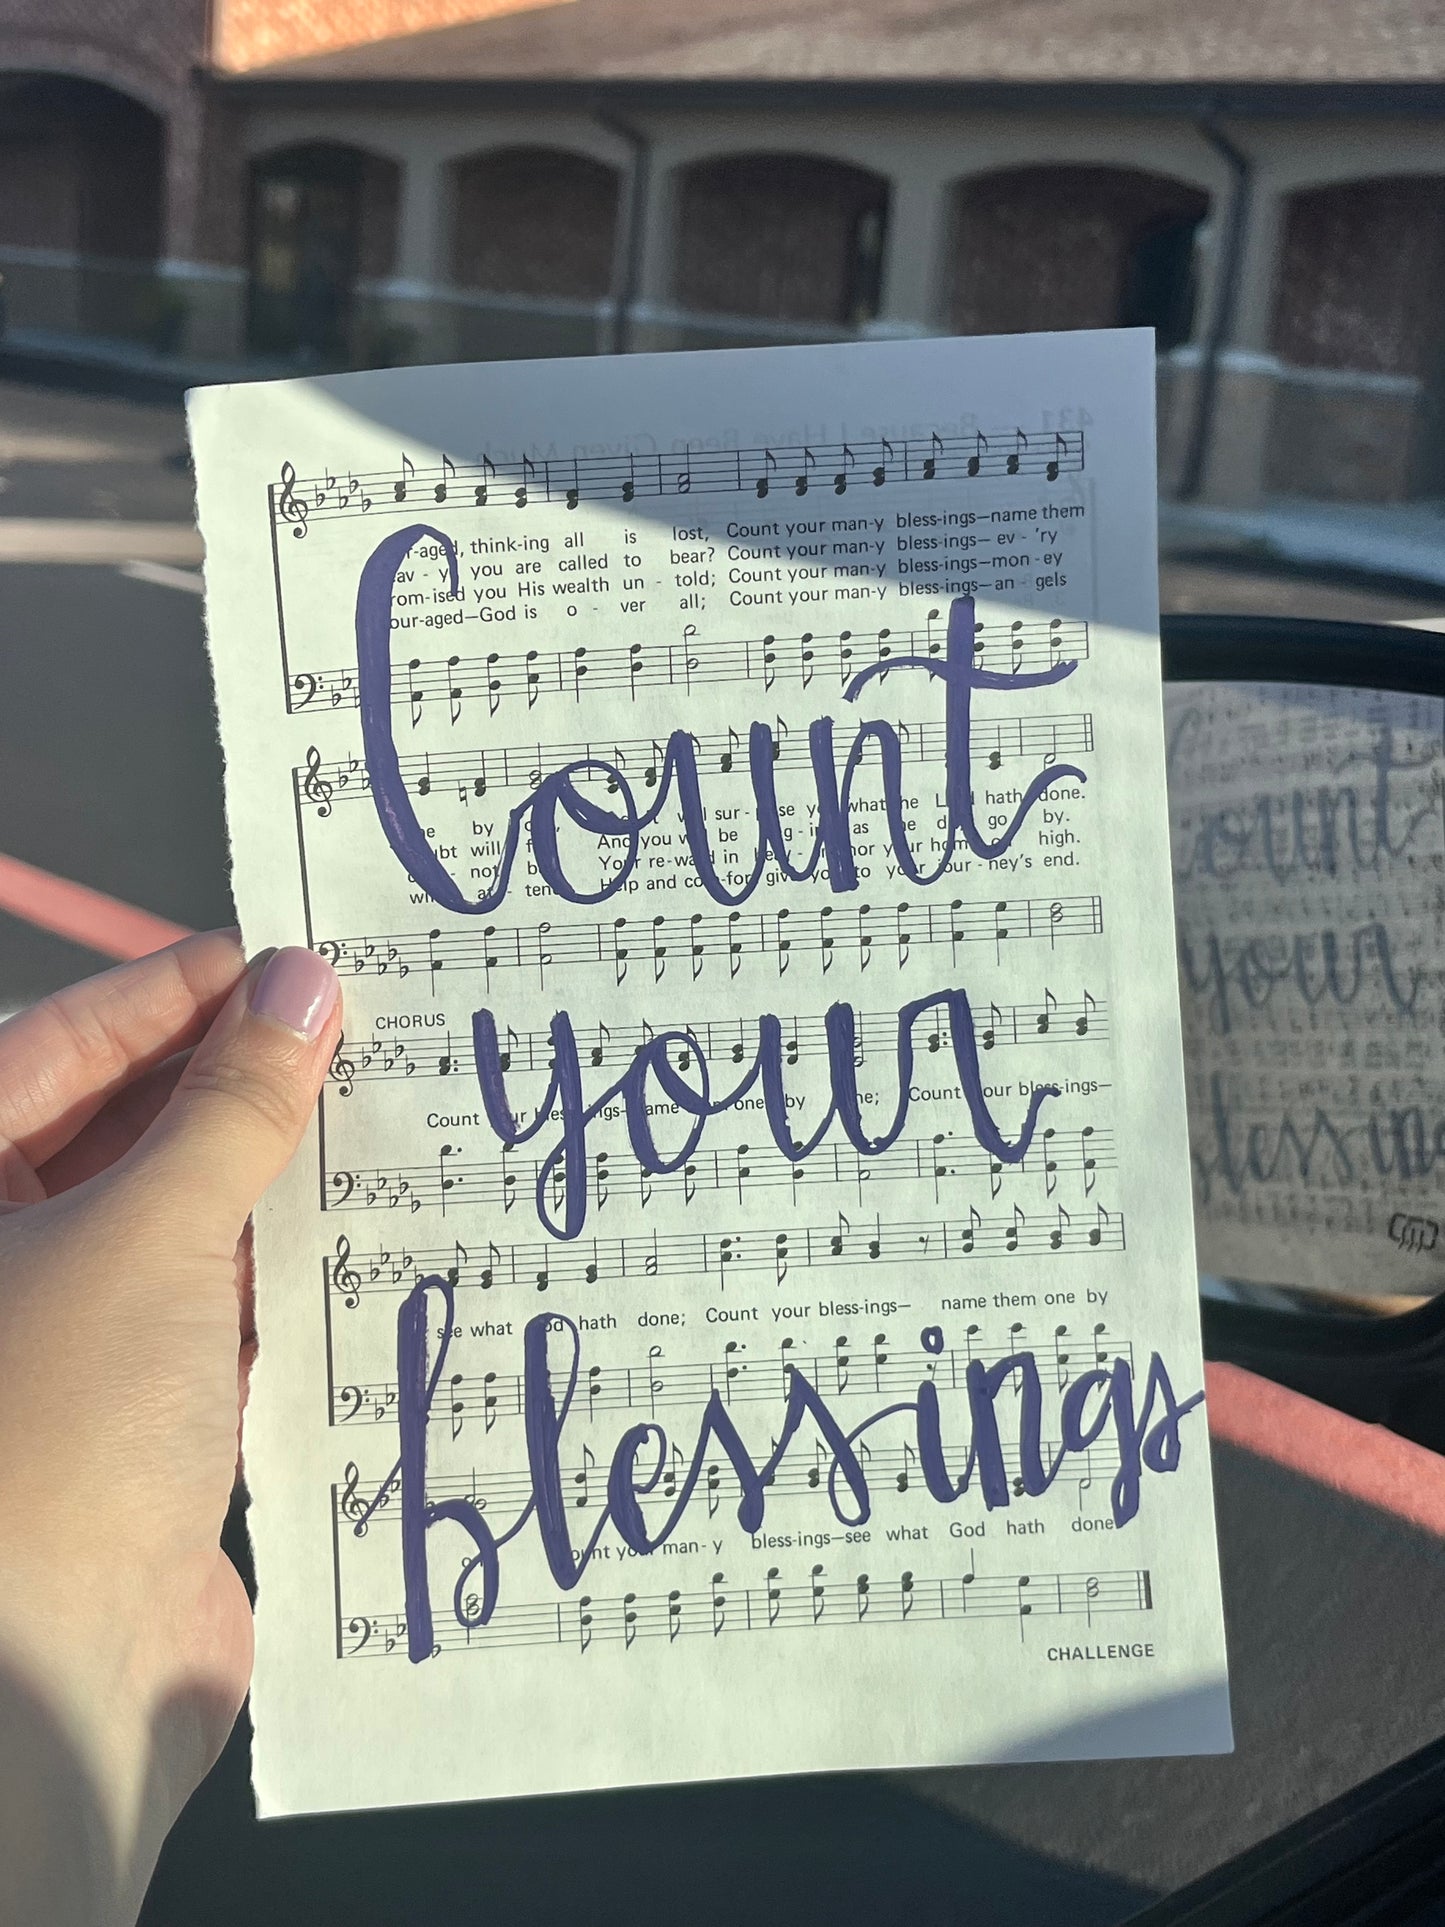 Count
your
blessings
thinking all is lost, Count your man-y bless-ings—name them
you are called to bear? Count your man-y bless-ings— ev - 'ry
you His wealth un - told; Count your man-y bless-ings—mon - ey
our-aged—God is o - ver all; Count your man-y bless-ings—an - gels
by sur - what hath done.
will And you be as go by.
not Your re-ward in nor your high.
Help and com-fort give you to your jour - ney's end.
CHORUS
Count one by Count your bless-ings—
see what God hath done; Count your bless-ings— name them one by
your man - y bless-ings—see what God hath done
CHALLENGE